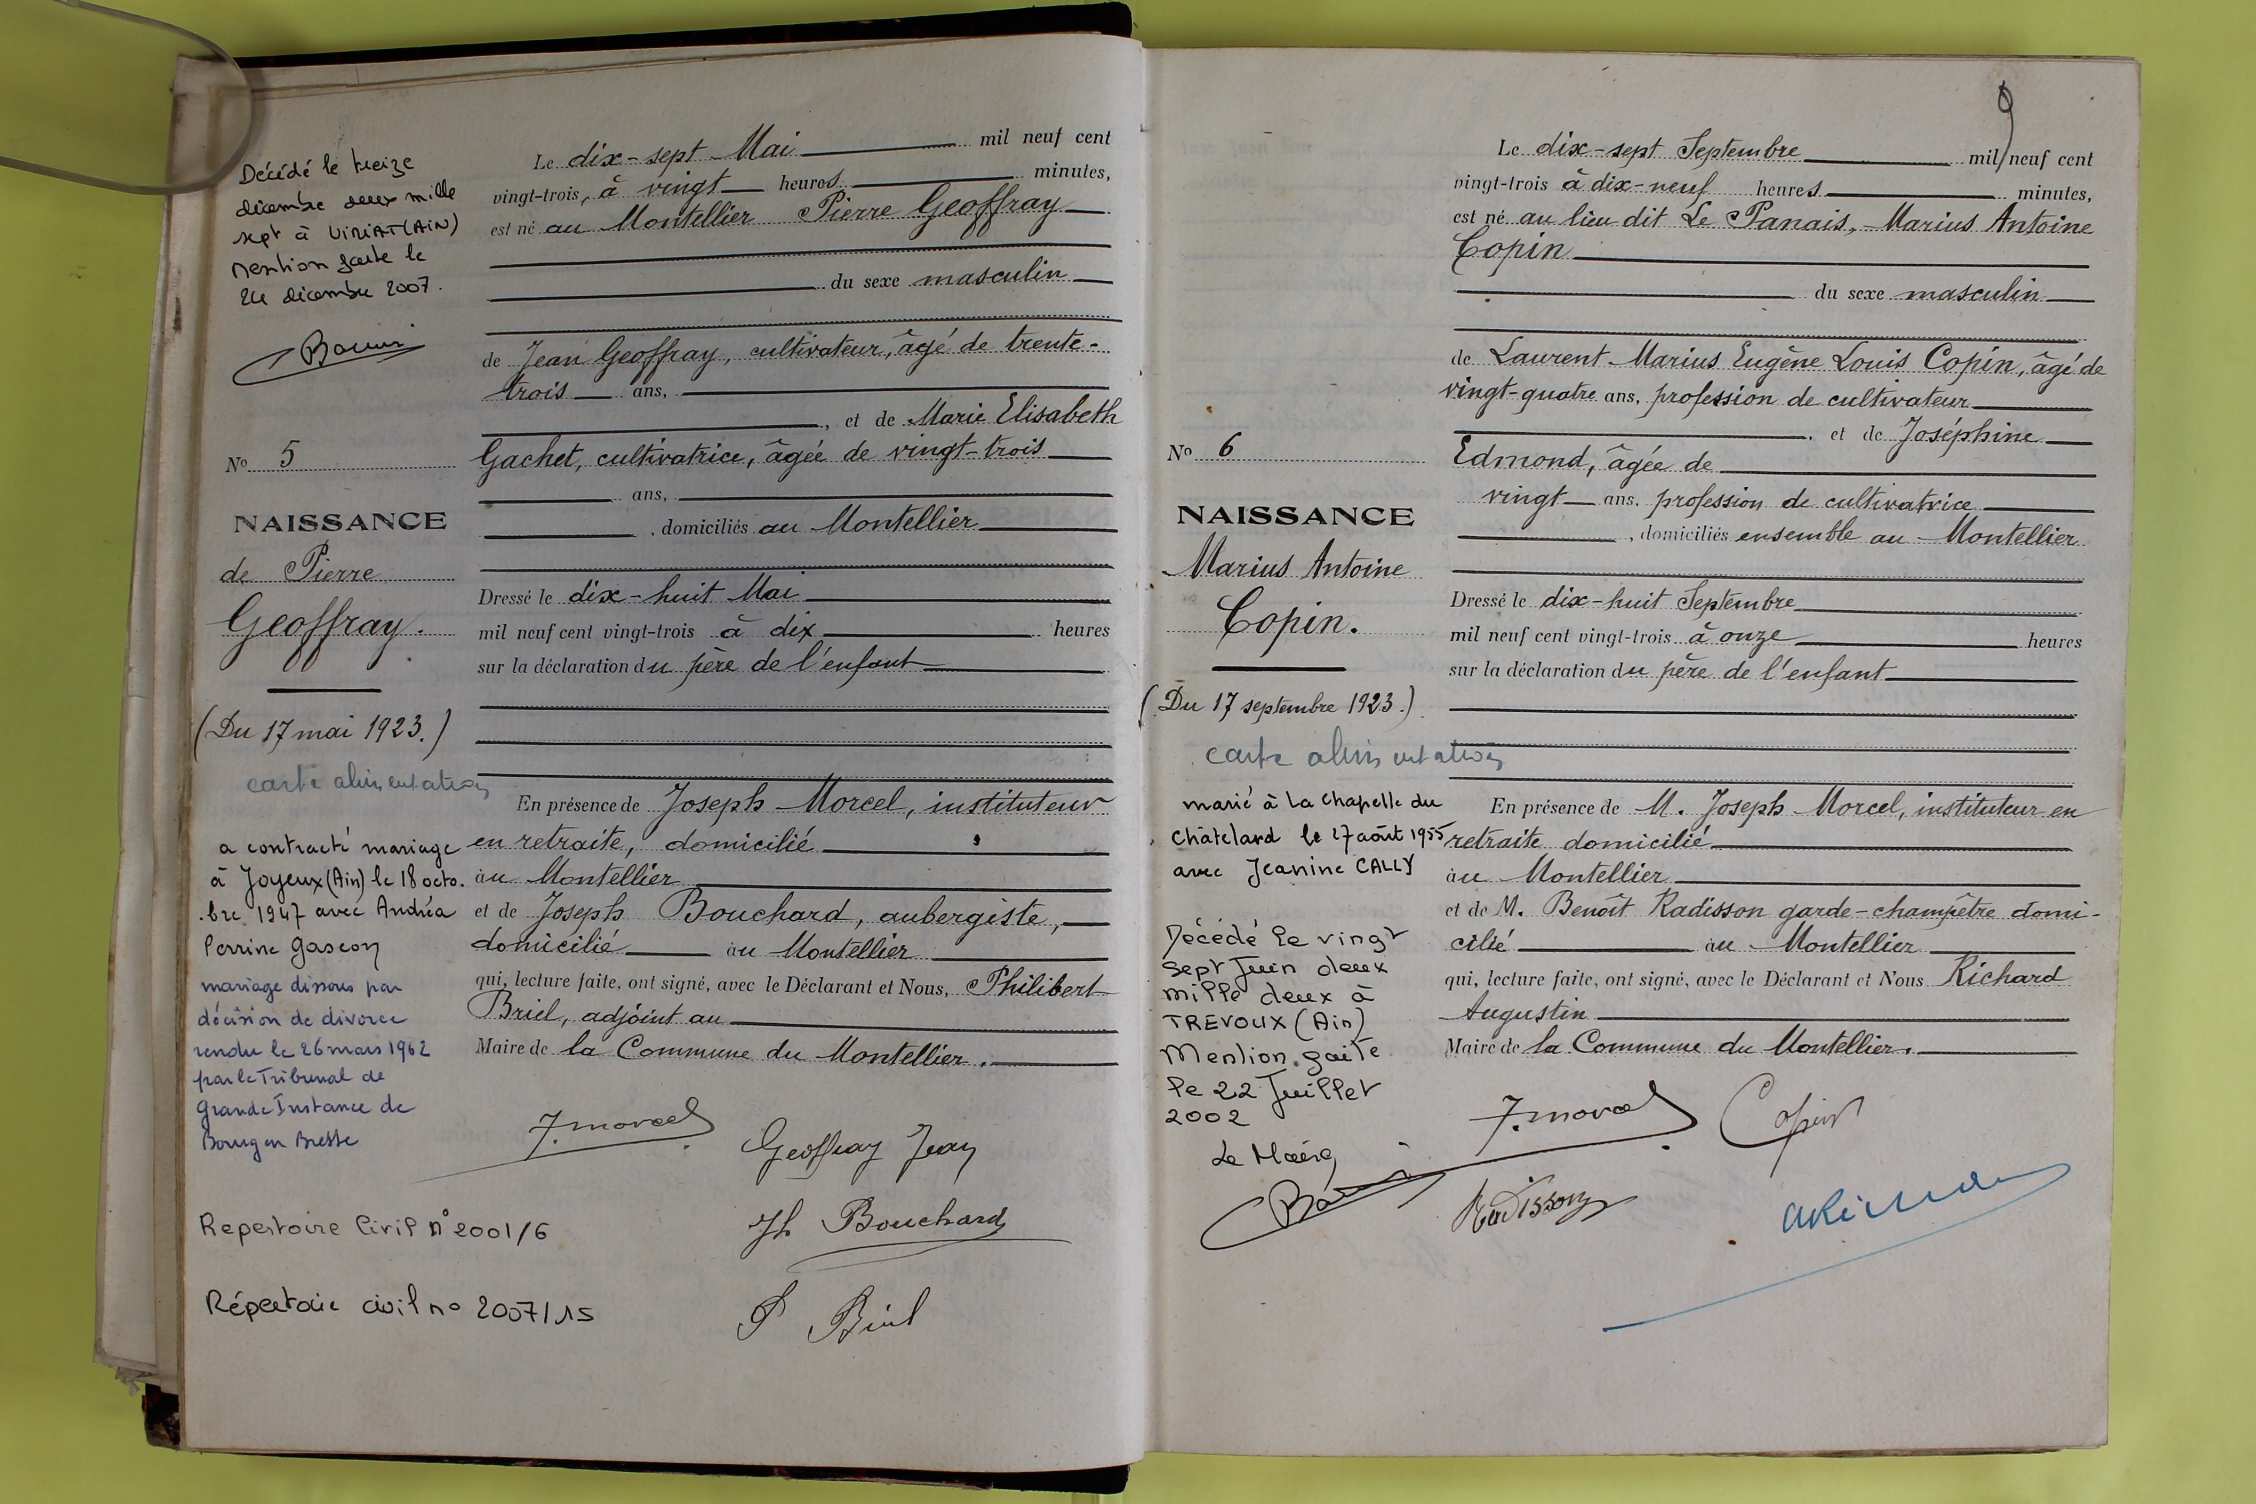 Décédé le treize
décembre deux mille
sept à VIRIAT (AIN)
Mention faite le
24 décembre 2007.
No 5
NAISSANCE
de Pierre
Geoffray.
(Du 17 mai 1923.)
carte alimentation
a contracté mariage
à Joyeux (Ain) le 18 octo.
.bre 1947 avec Andréa
Perrine Gascon
mariage dissous par
décision de divorce
rendu le 26 mars 1962
par le Tribunal de
Grande Instance de
Bourg en Bresse
Repertoire Civil n° 2001/6
Répertoire civil no 2007/15
Le dix-sept Mai mil neuf cent
vingt-trois, à vingt heures minutes,
est né au Montellier Pierre Geoffray
du sexe masculin
de Jean Geoffray, cultivateur, âgé de trente-
trois ans,
, et de Marie Elisabeth
Gachet, cultivatrice, âgée de vingt-trois
ans,
, domiciliés au Montellier
Dressé le dix-huit Mai
mil neuf cent vingt-trois à dix heures
sur la déclaration du père de l'enfant
En présence de Joseph Morcel, instituteur
en retraite, domicilié
au Montellier
et de Joseph Bouchard, aubergiste,
domicilié au Montellier
qui, lecture faite, ont signé, avec le Déclarant et Nous, Philibert
Briel, adjoint au
Maire de la Commune du Montellier.
J. Morcel
Geoffray Jean
Jh Bouchard
P Briel
9
No 6
NAISSANCE
Marius Antoine
Copin.
(Du 17 septembre 1923.)
carte alimentation
marié à La Chapelle du
Châtelard le 27 août 1955
avec Jeanine CALLY
Décédé le vingt
sept Juin deux
mille deux à
TREVOUX (Ain)
Mention faite
le 22 Juillet
2002
Le Maire
Le dix-sept Septembre mil neuf cent
vingt-trois à dix-neuf heures minutes,
est né au lieu dit Le Panais, Marius Antoine
Copin
du sexe masculin
de Laurent Marius Eugène Louis Copin, âgé de
vingt-quatre ans, profession de cultivateur
, et de Joséphine
Edmond, âgée de
vingt ans, profession de cultivatrice
, domiciliés ensemble au Montellier
Dressé le dix-huit Septembre
mil neuf cent vingt-trois à onze heures
sur la déclaration du père de l'enfant
En présence de M. Joseph Morcel, instituteur en
retraite domicilié
au Montellier
et de M. Benoît Radisson garde-champêtre domi-
cilié au Montellier
qui, lecture faite, ont signé, avec le Déclarant et Nous Richard
Augustin
Maire de la Commune du Montellier.
J. Morcel
Copin
Radisson